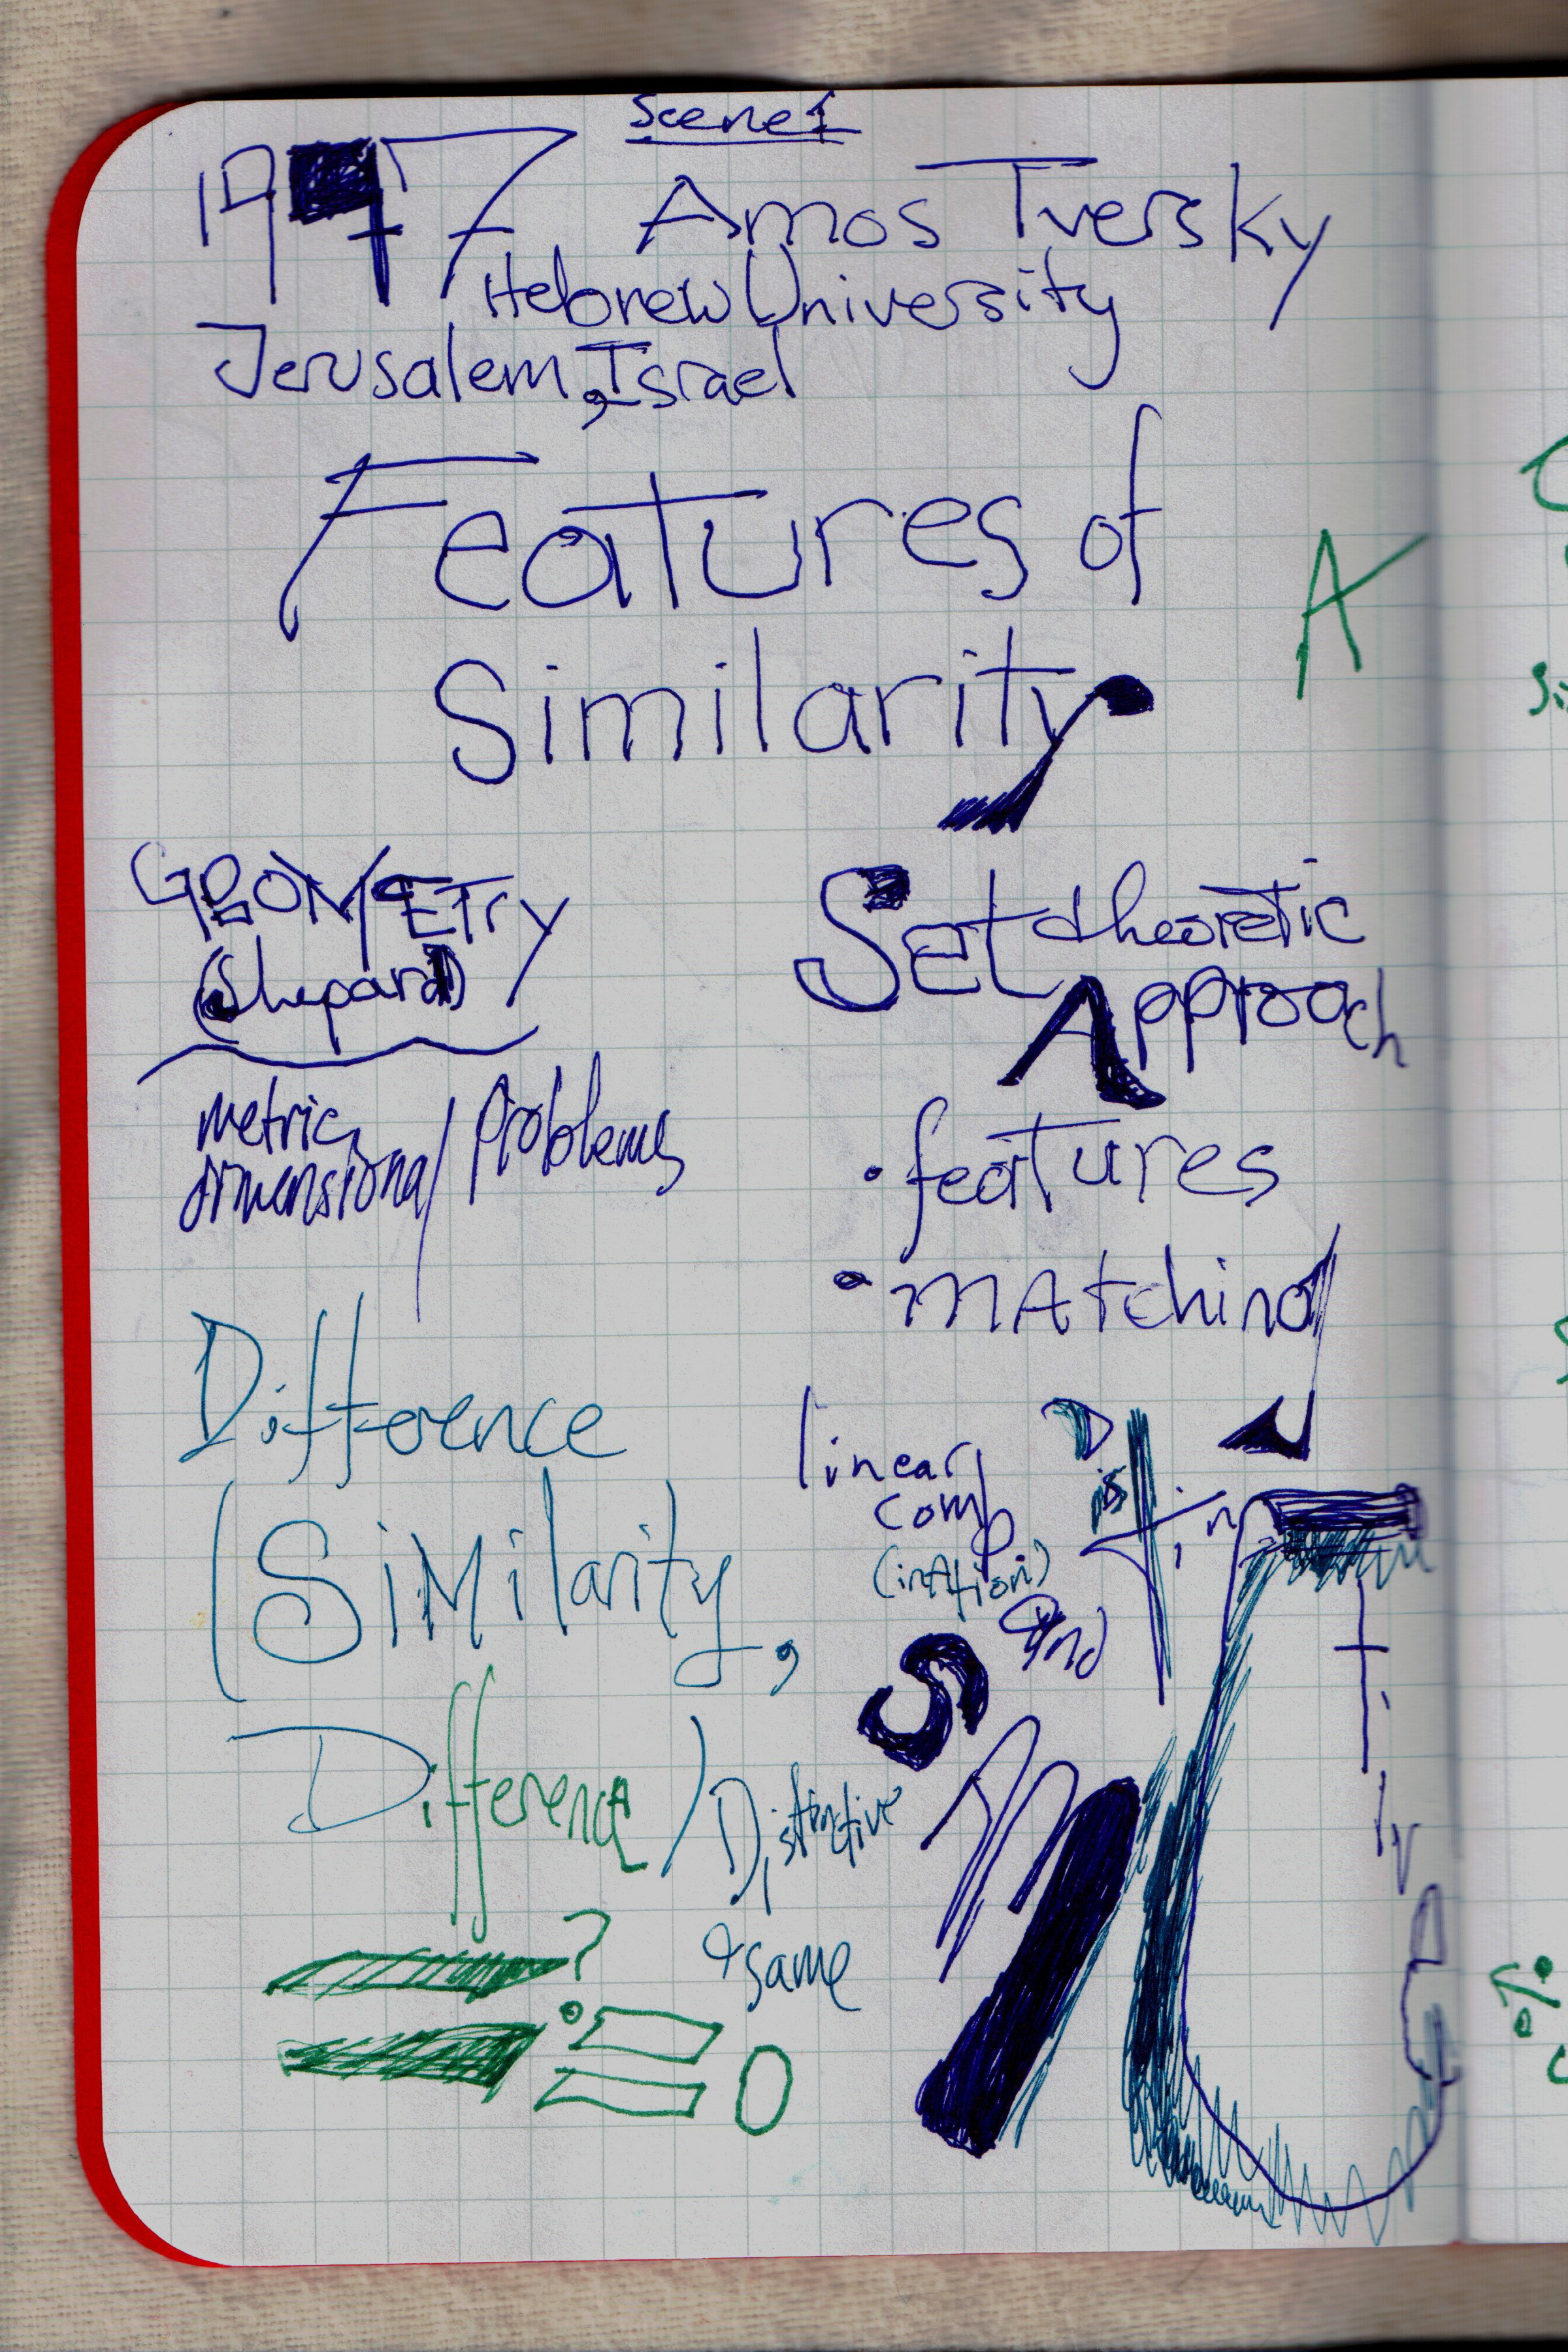 Scene 1
1977 Amos Tversky
Hebrew University
Jerusalem, Israel
Features of
Similarity
A
GEOMETry
(Shepard)
metric
dimensional
Problems
Set theoretic
Approach
• features
• mAtching
Difference
(SiMilarity,
Difference)
Distinctive
& same
linear
comb
(inAtion)
and
?
0